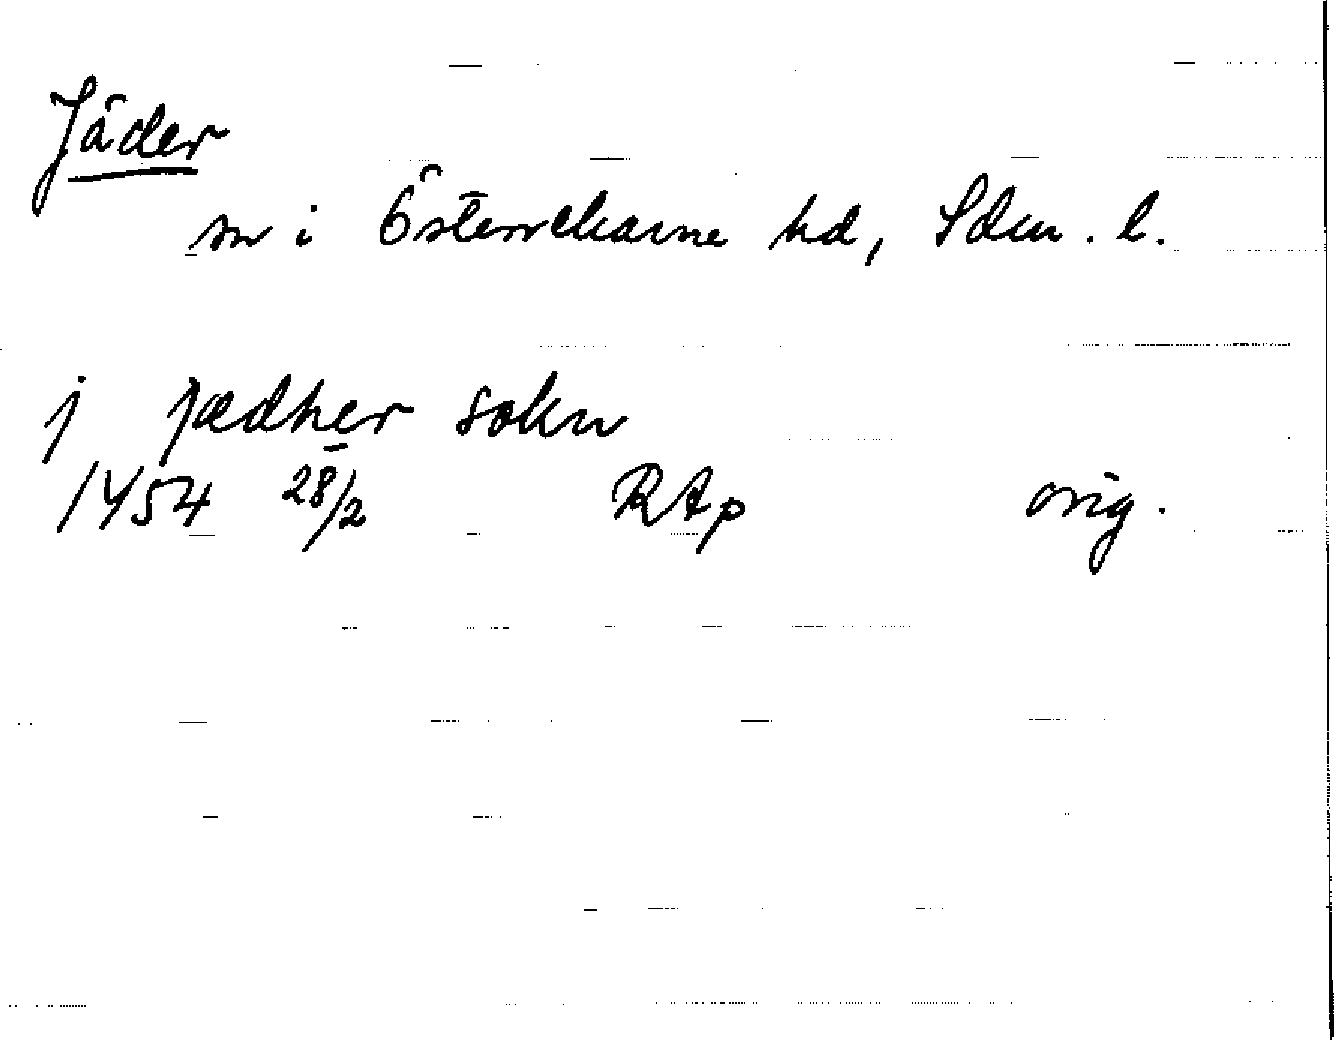 Jäder
sn i Österrekarne hd, Sdm. l.
j jædher sokn
1454 28/2 RAp orig.